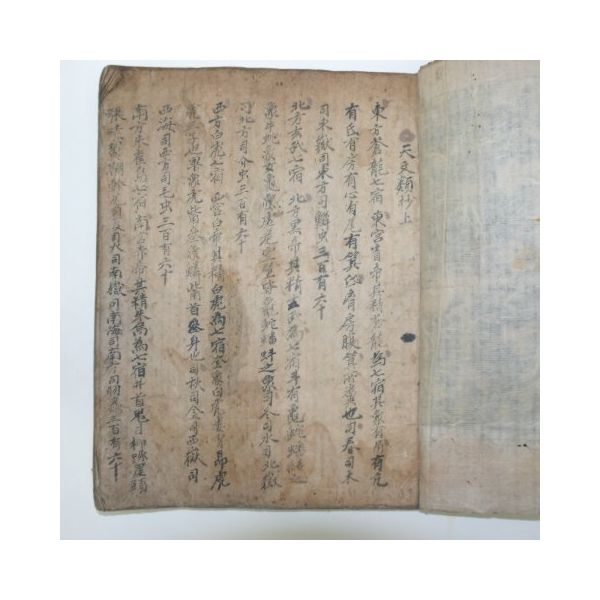 天文類抄上
東方蒼龍七宿 東宮靑帝其精蒼龍為七宿其象有角有亢
有氐有房有心有尾有箕氐胷房腹箕所糞也司春司木
司東嶽司東方司鱗虫三百有六十
北方玄武七宿 北方黑帝其精玄武為七宿斗有龜蛇蟠結之
象牛蛇象女龜象虛危室壁皆龜蛇蟠蚪之象司冬司水司北嶽
司北方司介虫三百有六十
西方白虎七宿 西宮白帝其精白虎為七宿奎象白虎婁胃昴虎
三子也畢象虎觜參象麟觜首參身也司秋司金司西嶽司
西海司西方司毛虫三百有六十
南方朱雀為七宿 南宮赤帝其精朱鳥為七宿井首鬼目柳喙星頸
張嗉翼翮軫尾司夏司火司南嶽司南海司南方司羽虫三百有六十